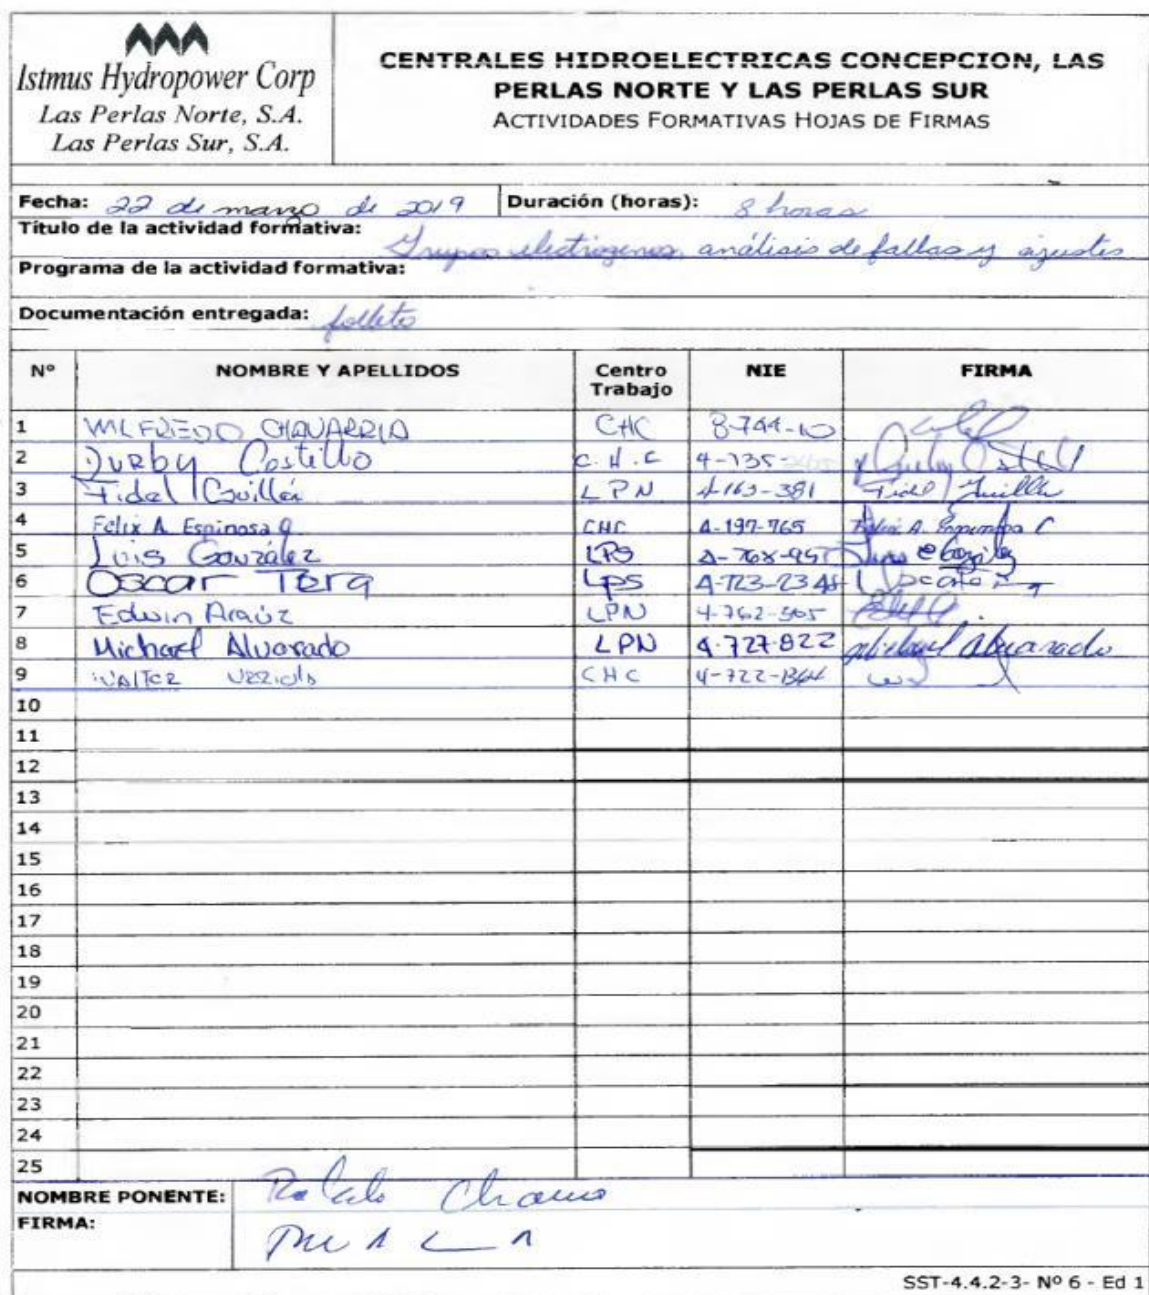 Istmus Hydropower Corp
Las Perlas Norte, S.A.
Las Perlas Sur, S.A.
CENTRALES HIDROELECTRICAS CONCEPCION, LAS
PERLAS NORTE Y LAS PERLAS SUR
ACTIVIDADES FORMATIVAS HOJAS DE FIRMAS
Fecha: 22 de marzo de 2019 Duración (horas): 8 horas
Título de la actividad formativa: Grupos electrogenos, análisis de fallas y ajustes
Programa de la actividad formativa:
Documentación entregada: folleto
Nº NOMBRE Y APELLIDOS Centro Trabajo NIE FIRMA
1 WILFREDO CHAVARRIA CHC 8-744-10
2 Durby Castillo C.H.C 4-735-
3 Fidel Guillén LPN 4-163-381 Fidel Guillén
4 Felix A. Espinosa CHC 4-197-765 Felix A. Espinosa C
5 Luis González LPS 4-768-957
6 Oscar Tera Lps 4-723-2348
7 Edwin Araúz LPN 4-762-305
8 Michael Alvarado LPN 4-727-822 Michael Alvarado
9 WALTER URRIOLA CHC 4-722-1344
10
11
12
13
14
15
16
17
18
19
20
21
22
23
24
25
NOMBRE PONENTE:
FIRMA:
SST-4.4.2-3- Nº 6 - Ed 1